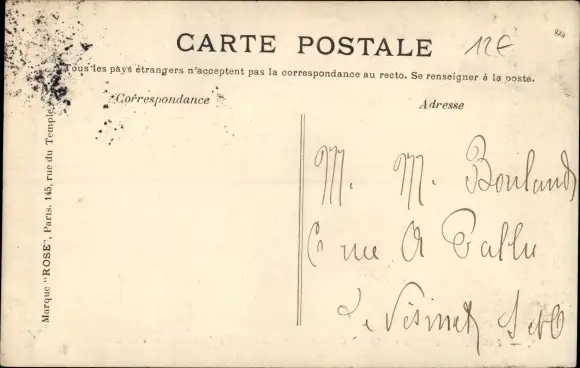 CARTE POSTALE
12€
Tous les pays étrangers n'acceptent pas la correspondance au recto. Se renseigner à la poste.
Correspondance
Adresse
Marque "ROSE", Paris. 145, rue du Temple.
M. M. Bouland
6 rue A Pallu
Le Vésinet S et O